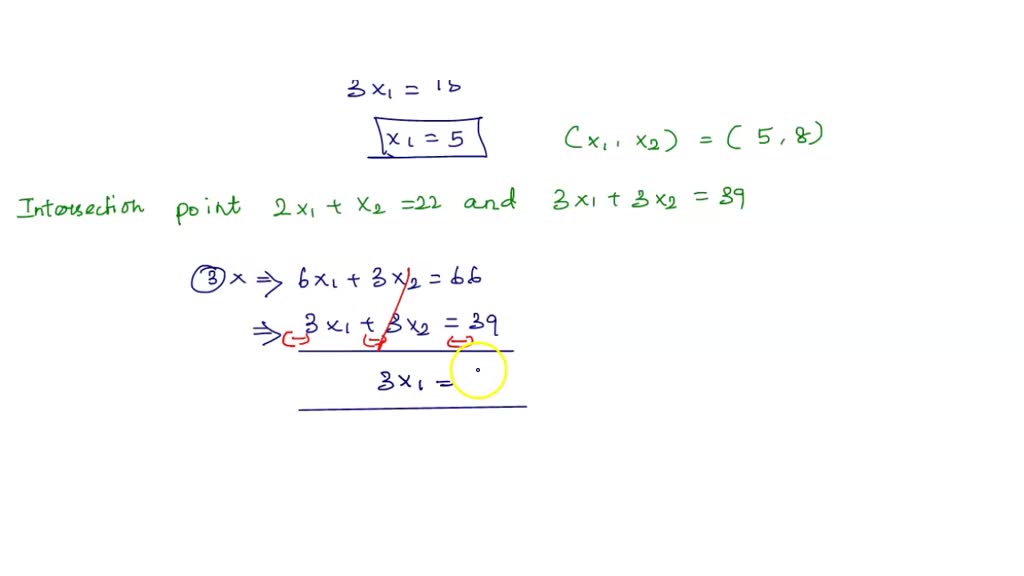 3x₁ = 15
x₁ = 5
(x₁, x₂) = (5, 8)
Intersection point 2x₁ + x₂ = 22 and 3x₁ + 3x₂ = 39
③ x ⇒ 6x₁ + 3x₂ = 66
⇒ 3x₁ + 3x₂ = 39
(-) (-) (-)
3x₁ =